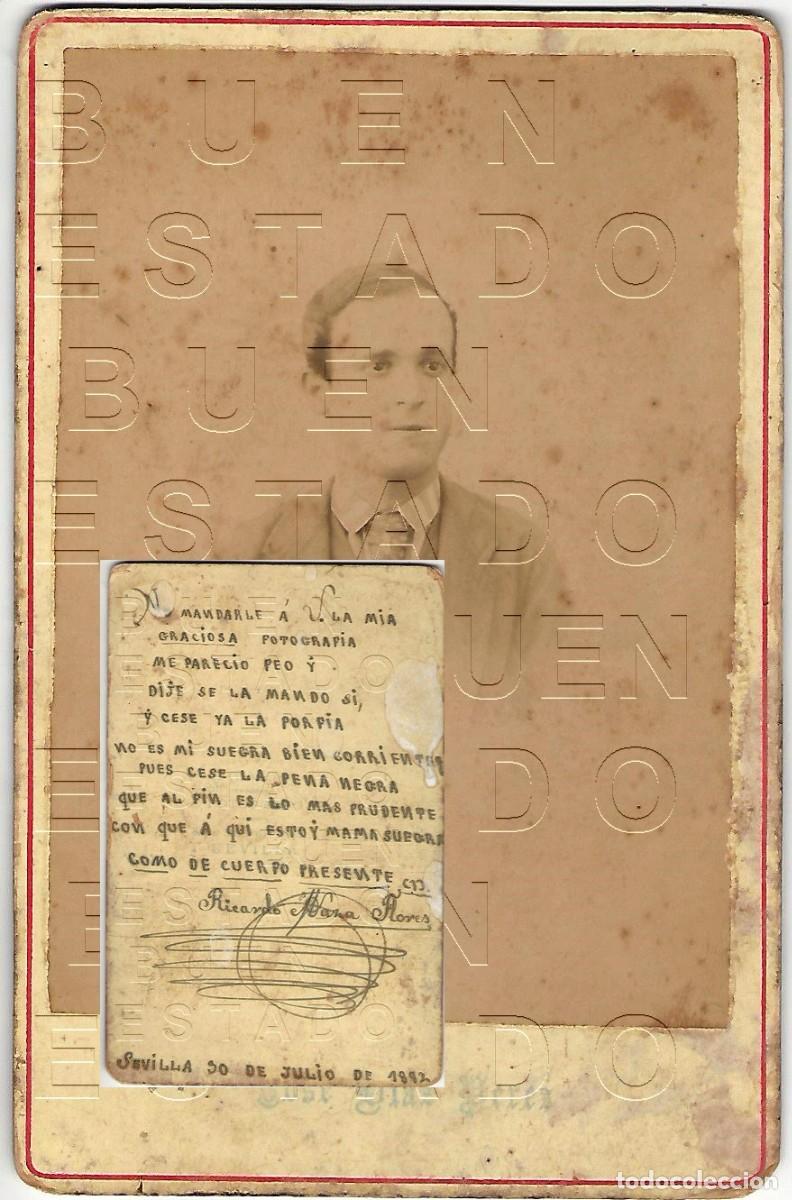 BUEN
ESTADO
BUEN
ESTADO
BUEN
ESTADO
MANDARLE Á V. LA MIA
GRACIOSA FOTOGRAFIA
ME PARECIO FEO Ý
DIJE SE LA MANDO SI,
Ý CESE YA LA PORFIA
NO ES MI SUEGRA BIEN CORRIENTE
PUES CESE LA PENA NEGRA
QUE AL FIN ES LO MAS PRUDENTE
CON QUE Á QUI ESTOÝ MAMA SUEGRA
COMO DE CUERPO PRESENTE
Ricardo Flores
SEVILLA 30 DE JULIO DE 1892
todocoleccion